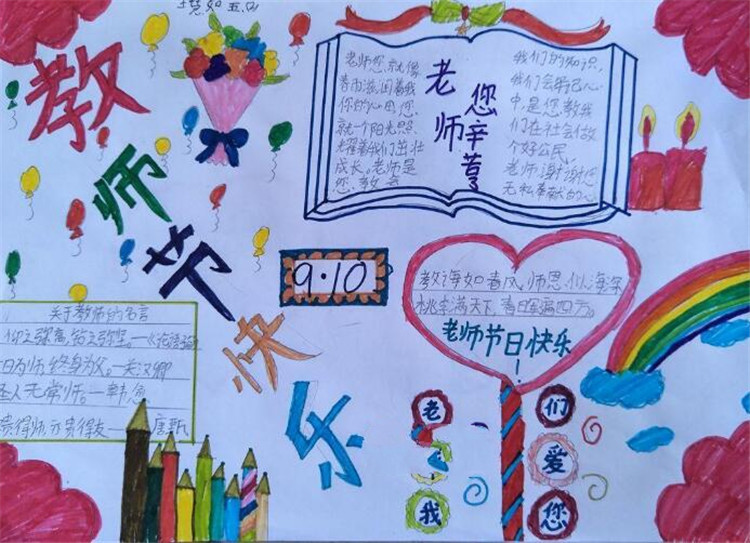 教师节快乐
老师您就像
春雨滋润着我
你的心田,您
就一个阳光照
耀着我们茁壮
成长。老师是
您,教会
老师
您辛苦了
我们的知识,
我们会
中,是您教我
们在社会做
个好公民,
老师,谢谢您
无私奉献的心
9·10
教诲如春风,师恩似海深
桃李满天下,春晖遍四方。
老师节日快乐
!
关于教师的名言
仰之弥高,钻之弥坚。—《论语》
日为师,终身为父。—关汉卿
圣人无常师。—韩愈
贵得师,亦贵得友——唐甄
老
我
们
爱
您